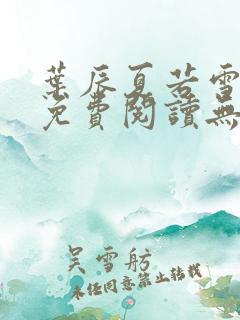 葉辰夏若雪
免費閱讀無
吳雪舫
未經同意禁止轉載